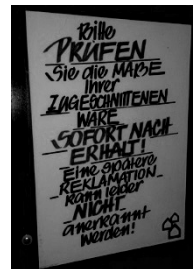 Bitte
PRÜFEN
Sie die MAßE
Ihrer
ZUGESCHNITTENEN
WARE
SOFORT NACH
ERHALT!
Eine spätere
REKLAMATION
kann leider
NICHT
anerkannt
werden!